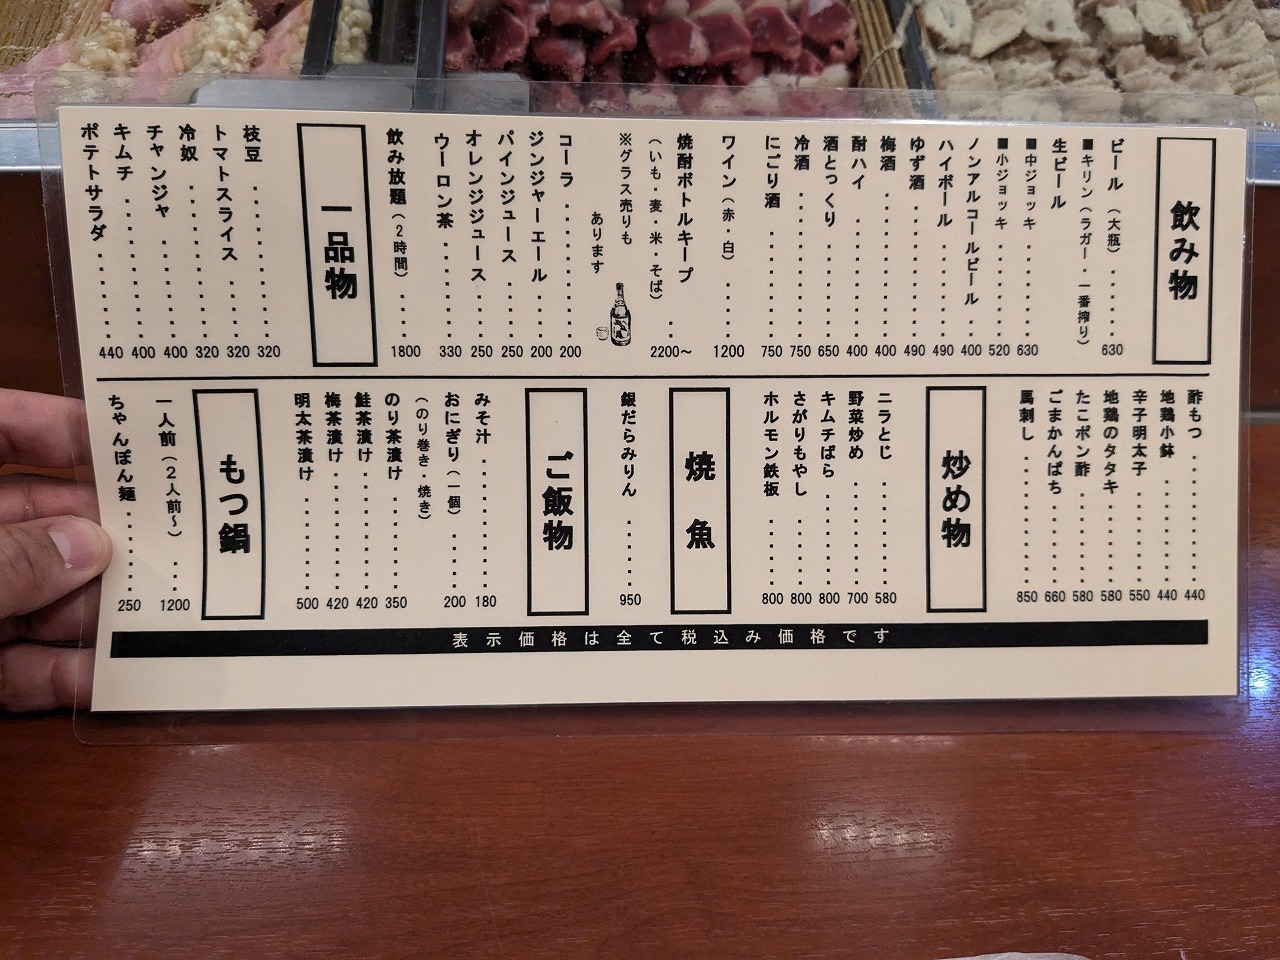 飲み物
ビール（大瓶）......630
■キリン（ラガー・一番搾り）
生ビール
■中ジョッキ......630
■小ジョッキ......520
ノンアルコールビール..400
ハイボール......490
ゆず酒......490
梅酒......400
酎ハイ......400
酒とっくり......650
冷酒......750
にごり酒......750
ワイン（赤・白）......1200
焼酎ボトルキープ..2200～
（いも・麦・米・そば）
※グラス売りも
あります
コーラ......200
ジンジャーエール...200
パインジュース....250
オレンジジュース...250
ウーロン茶......330
飲み放題（2時間）....1800
一品物
枝豆......320
トマトスライス....320
冷奴......320
チャンジャ......400
キムチ......400
ポテトサラダ......440
酢もつ......440
地鶏小鉢......440
辛子明太子......550
地鶏のタタキ......580
たこポン酢......580
ごまかんぱち......660
馬刺し......850
炒め物
ニラとじ......580
野菜炒め......700
キムチばら......800
さがりもやし......800
ホルモン鉄板......800
焼魚
銀だらみりん.....950
ご飯物
みそ汁......180
おにぎり（一個）....200
（のり巻き・焼き）
のり茶漬け......350
鮭茶漬け......420
梅茶漬け......420
明太茶漬け......500
もつ鍋
一人前（2人前～）..1200
ちゃんぽん麺.....250
表示価格は全て税込み価格です